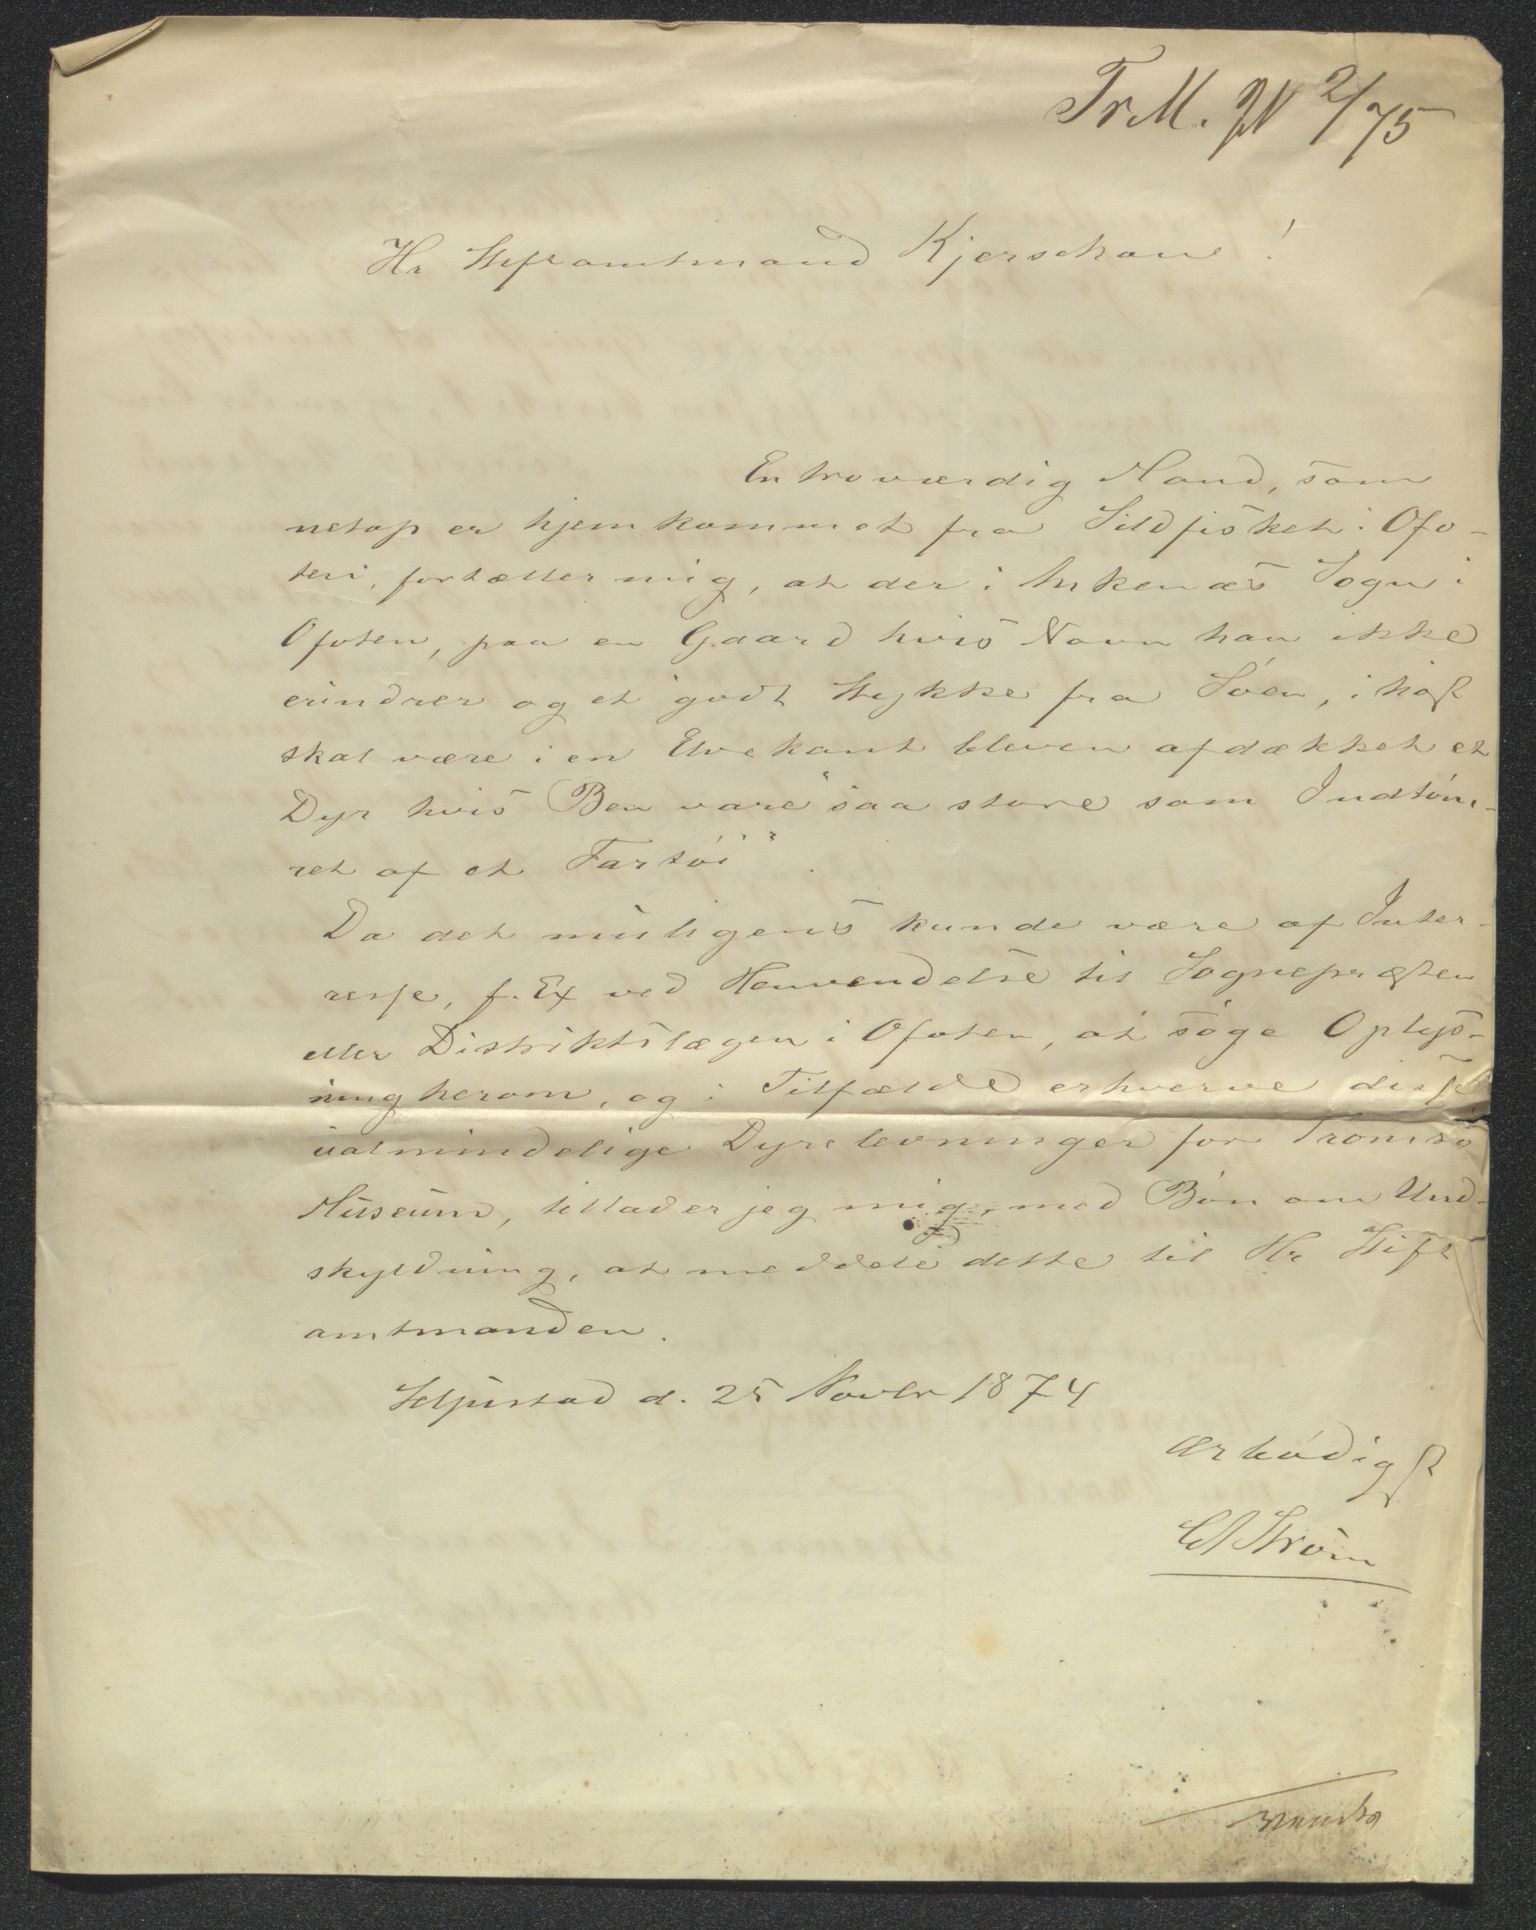 Tr. M. N 2/75
Hr Stiftamtmand Kjerschow!
En troværdig Mand, som
netop er hjemkommet fra Sildfisket i Ofo-
ten, fortæller mig, at der i Ankenæs Sogn i
Ofoten, paa en Gaard hvis Navn han ikke
erindrer og et godt Stykke fra Söen, i höst
skal være i en Elvekant bleven afdækket et
Dyr hvis Ben vare "saa store som Indtöm-
ret af et Fartöi".
Da det muligens kunde være af Inter-
resse, f. Ex ved Henvendelse til Sognepræsten
eller Distriktslægen i Ofoten, at söge Oplys-
ning herom, og i Tilfælde erhverve disse
ualmindelige Dyrelevninger for Tromsö
Museum, tillader jeg mig, med Bön om Und-
skyldning, at meddele dette til Hr Stift
amtmanden.
Seljestad d. 25 Novbr 1874
ærbödigst
Ström